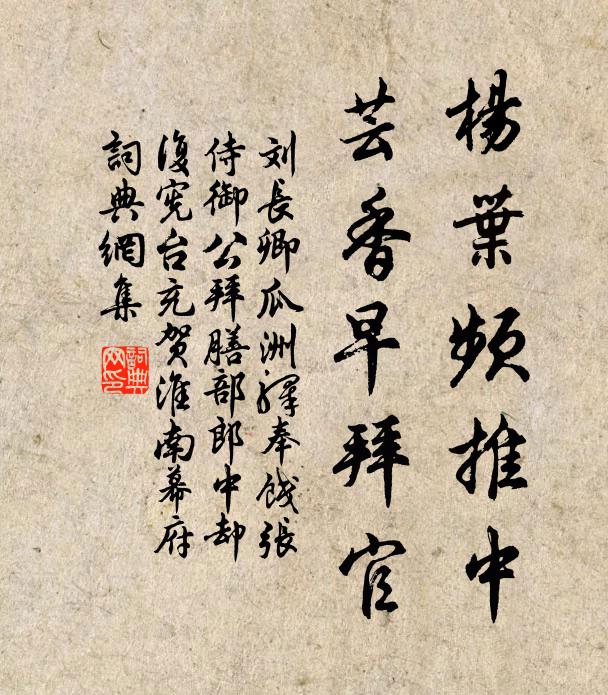 楊葉頻推中
芸香早拜官
刘長卿瓜洲驛奉餞張
侍御公拜膳部郎中却
復宪台充贺淮南幕府
詞典網集
詞典網印